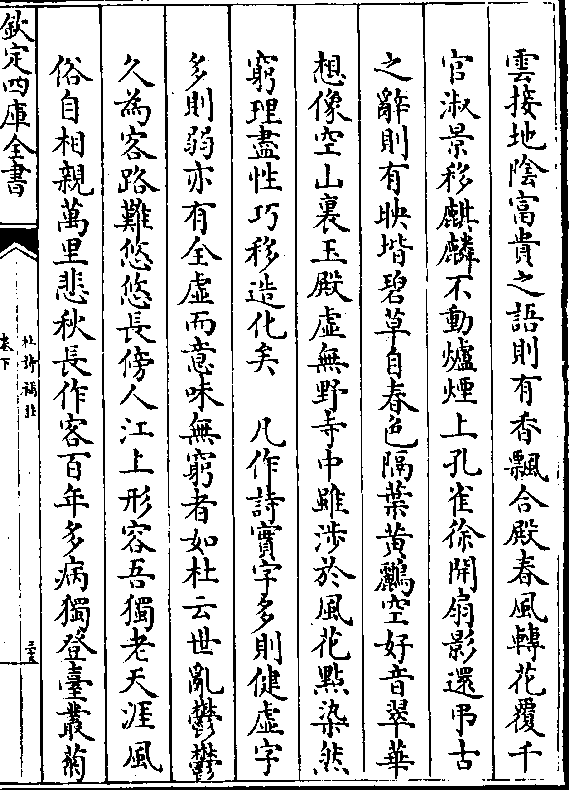 雲接地陰富貴之語則有香飄合殿春風轉花覆千
官淑景移麒麟不動爐煙上孔雀徐開扇影還弔古
之辭則有映堦碧草自春色隔葉黃鸝空好音翠華
想像空山裏玉殿虛無野寺中雖渉於風花點染然
窮理盡性巧移造化矣　凡作詩實字多則健虛字
多則弱亦有全虛而意味無窮者如杜云世亂鬱鬱
久為客路難悠悠長傍人江上形容吾獨老天涯風
俗自相親萬里悲秋長作客百年多病獨登臺叢菊
欽定四庫全書
杜詩攟
卷下